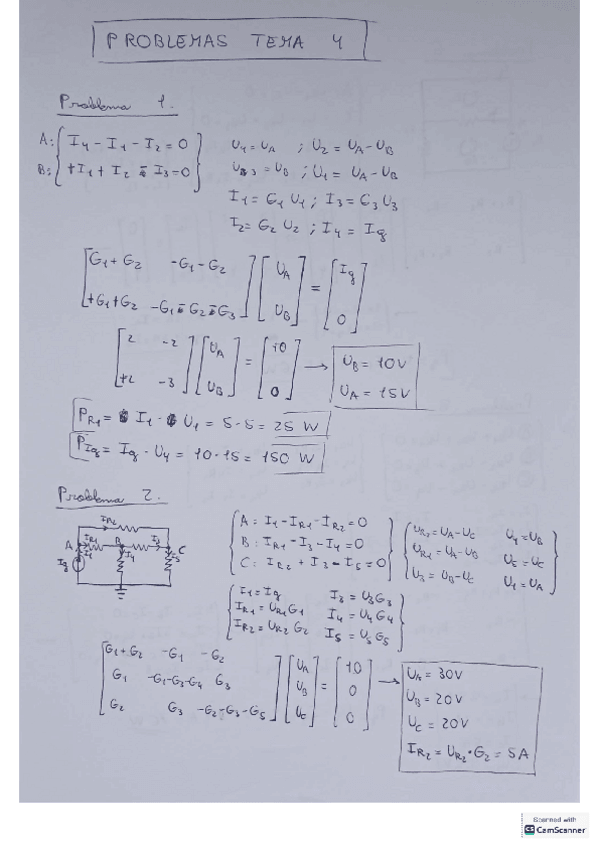 PROBLEMAS TEMA 4
Problema 1.
A: I4 - I1 - I2 = 0
B: +I1 + I2 - I3 = 0
U4 = UA ; U2 = UA - UB
U3 = UB ; U1 = UA - UB
I1 = G1 U1 ; I3 = G3 U3
I2 = G2 U2 ; I4 = Ig
G1 + G2 -G1 - G2 UA = Ig
+G1 + G2 -G1 - G2 - G3 UB 0
2 -2 UA = 10 → UB = 10V
+2 -3 UB 0 UA = 15V
PR1 = I1 · U1 = 5 · 5 = 25 W
PIg = Ig · U4 = 10 · 15 = 150 W
Problema 2.
IR2
A IR1 B I3 C
I1 I4 I5
Ig
A: I1 - IR1 - IR2 = 0
B: IR1 - I3 - I4 = 0
C: IR2 + I3 - I5 = 0
UR2 = UA - UC U4 = UB
UR1 = UA - UB U5 = UC
U3 = UB - UC U1 = UA
I1 = Ig I3 = U3 G3
IR1 = UR1 G1 I4 = U4 G4
IR2 = UR2 G2 I5 = U5 G5
G1 + G2 -G1 -G2 UA 10
G1 -G1-G2-G4 G3 UB = 0 →
G2 G3 -G2-G3-G5 UC 0
UA = 30V
UB = 20V
UC = 20V
IR2 = UR2 · G2 = 5A
Scanned with
CS CamScanner